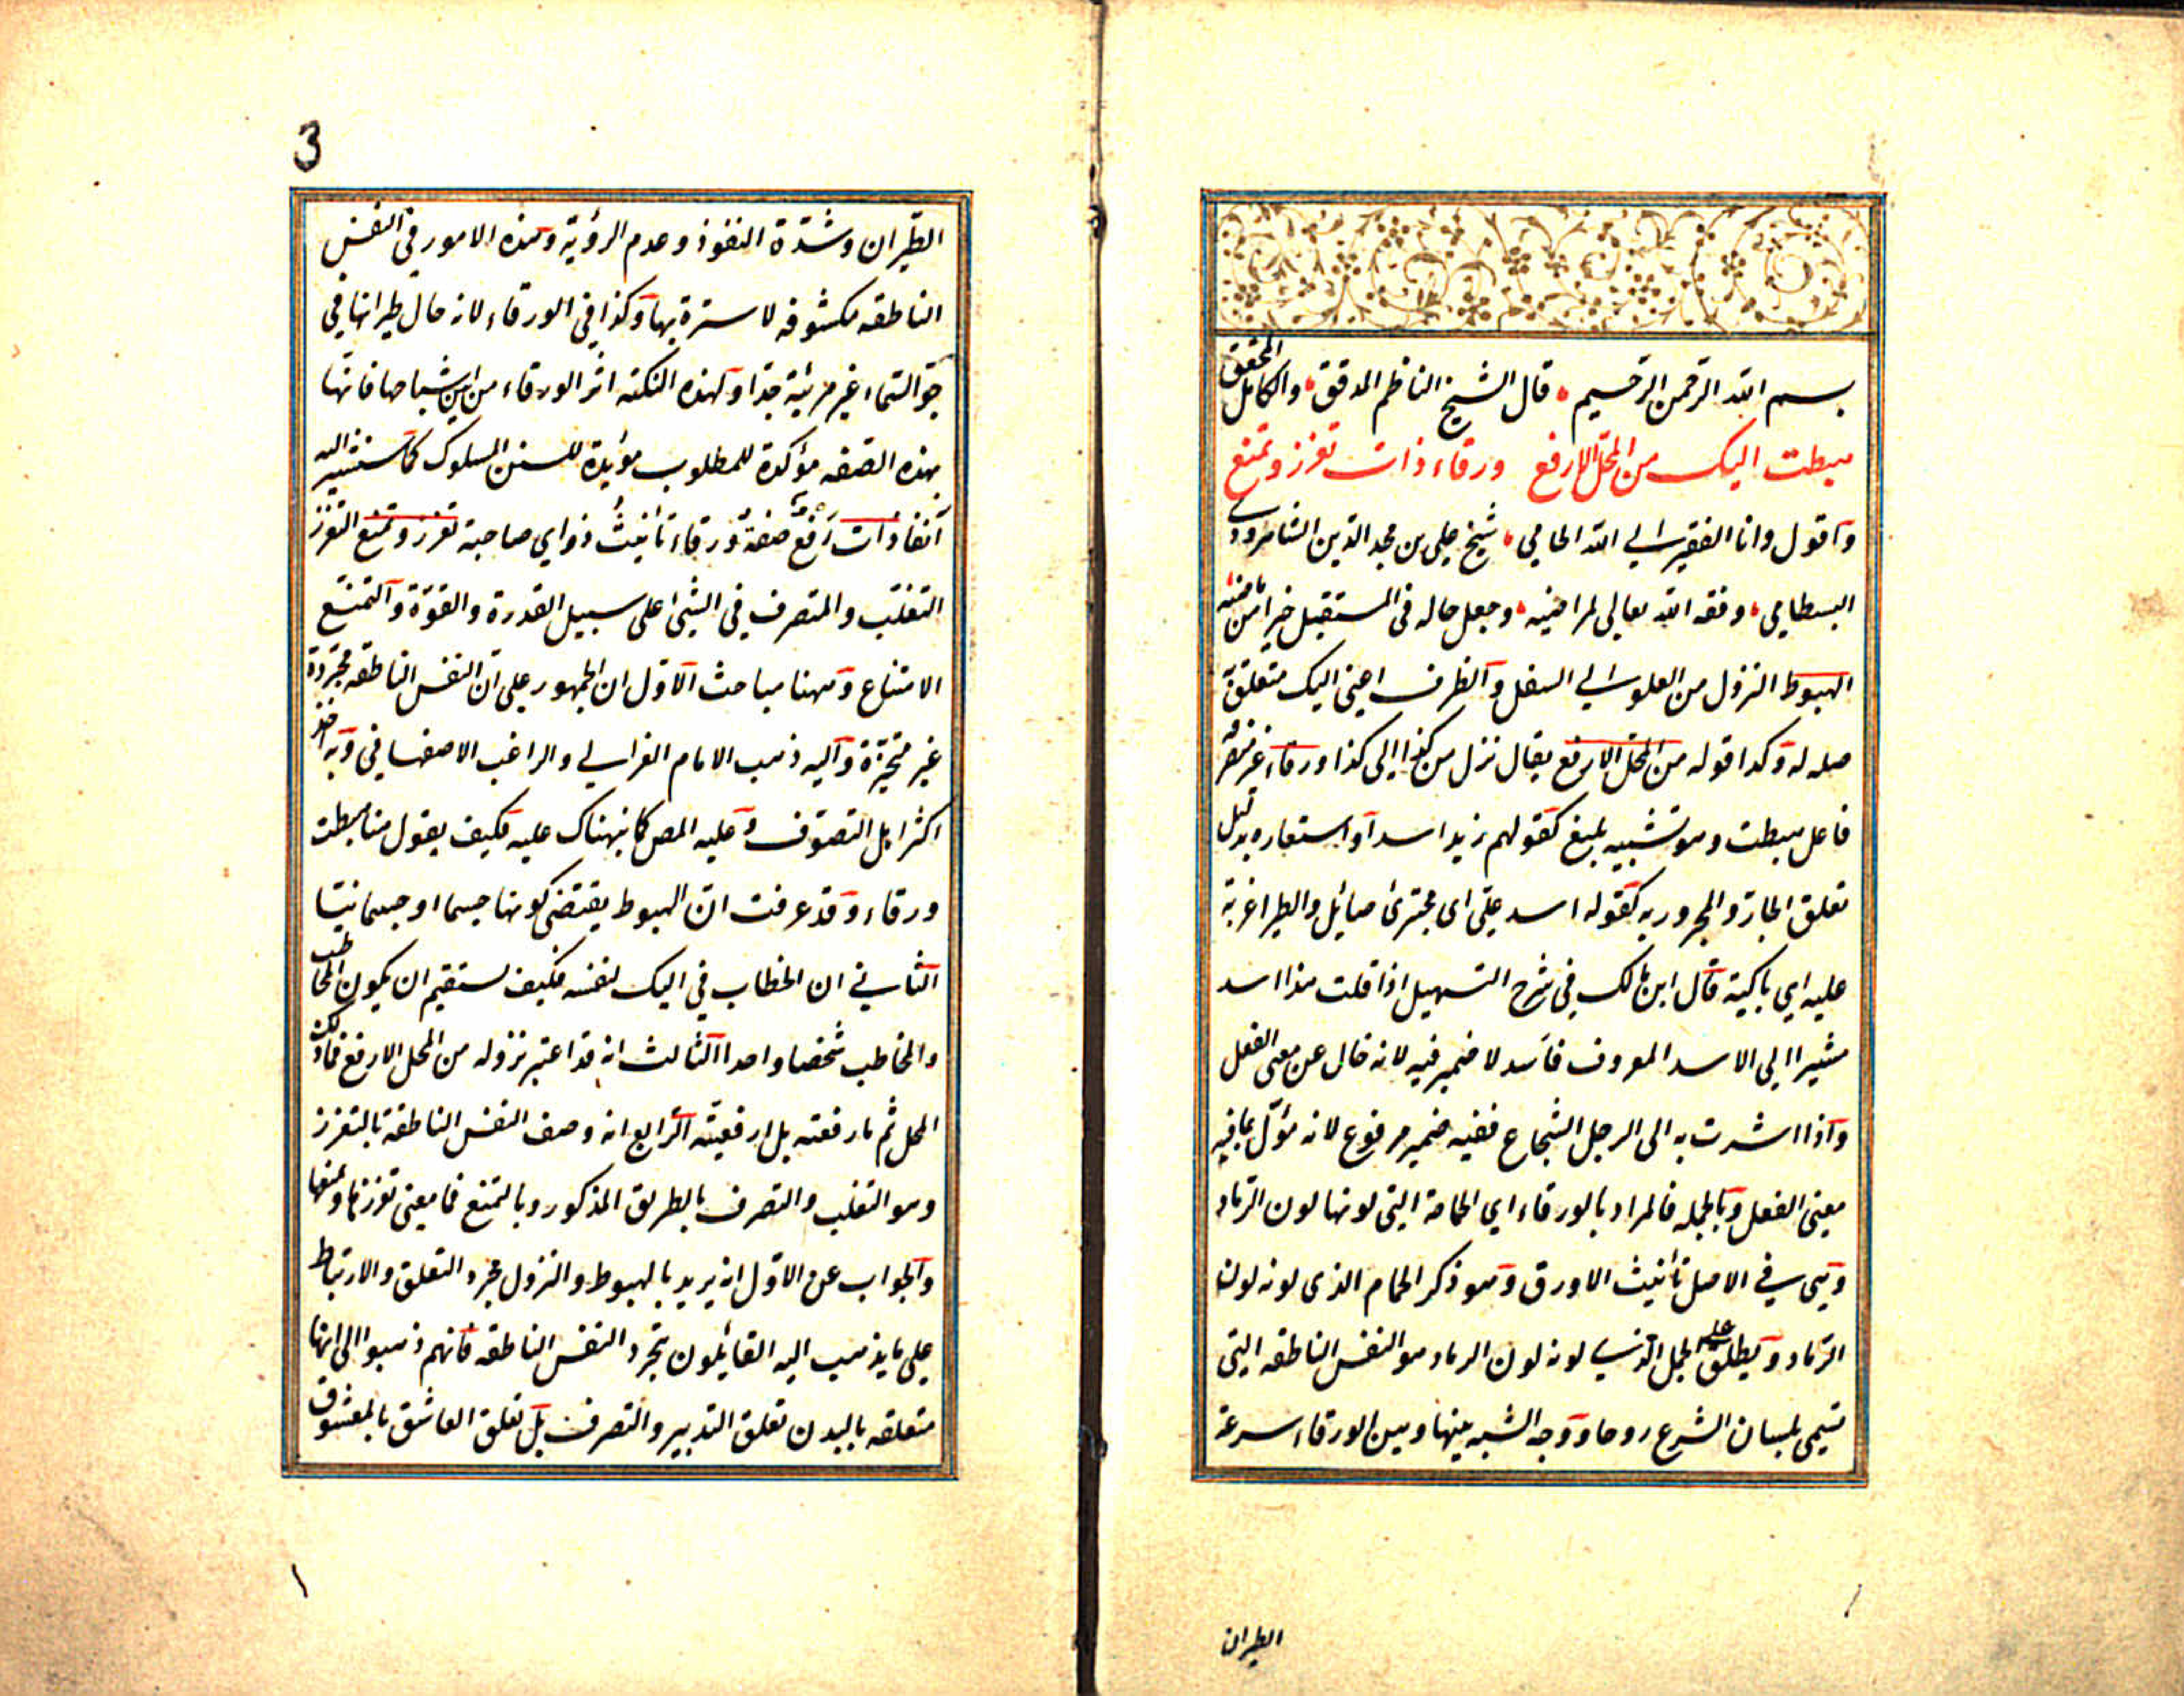 بسم الله الرحمن الرحيم قال الشيخ الناظم المدقق والكامل المحقق
هبطت اليك من المحل الارفع ورقاء ذات تعزز وتمنع
واقول وانا الفقير الى الله الحامي شيخ علي بن مجد الدين الشاهرودي
البسطامي وفقه الله تعالى لمراضيه وجعل حاله في المستقبل خيرا من ماضيه
الهبوط النزول من العلو الى السفل والظرف اعني اليك متعلق به
صله له وكذا قوله من المحل الارفع يقال نزل من كذا الى كذا ورقاء غير منصرفه
فاعل هبطت وهو تشبيه بليغ كقولهم زيد اسد او استعاره بدليل
تعلق الجار والمجرور به كقوله اسد علي اى مجترئ صائل والطير اغربة
عليه اي باكية قال ابن مالك في شرح التسهيل اذا قلت هذا اسد
مشيرا الى الاسد المعروف فاسد لا ضمير فيه لانه خال عن معنى الفعل
واذا اشرت به الى الرجل الشجاع ففيه ضمير مرفوع لانه مؤل بما فيه
معنى الفعل وبالجمله فالمراد بالورقاء اي الحمامة التى لونها لون الرماد
وهى في الاصل تأنيث الاورق وهو ذكر الحمام الذى لونه لون
الرماد ويطلق على الجمل الذي لونه لون الرماد هو النفس الناطقه التى
تسمى بلسان الشرع روحا ووجه الشبه بينها وبين الورقاء سرعة
الطيران
3
الطيران وشدة النفوذ وعدم الرؤية وهذه الامور في النفس
الناطقه مكشوفه لا سترة بها وكذا في الورقاء لانه حال طيرانها في
جو السماء غير مرئية جدا ولهذه النكته اثر الورقاء من بين اشباهها فانها
بهذه الصفه مؤكدة للمطلوب مؤيدة للسنن المسلوك كما ستشير اليه
آنفا ذات رفع صفة ورقاء تأنيث ذو اي صاحبة تعزز وتمنع التعزز
التغلب والتصرف في الشئ على سبيل القدرة والقوة والتمنع
الامتناع وههنا مباحث الاول ان الجمهور على ان النفس الناطقه مجردة
غير متحيزة واليه ذهب الامام الغزالي والراغب الاصفهاني وبه اخذ
اكثر اهل التصوف وعليه المص كما ينبهناك عليه فكيف يقول هنا هبطت
ورقاء وقد عرفت ان الهبوط يقتضى كونها جسما او جسمانيتا
الثاني ان الخطاب في اليك لنفسه فكيف يستقيم ان يكون المخاطب
والمخاطب شخصا واحدا الثالث انه قد اعتبر نزوله من المحل الارفع فما ذلك
المحل ثم ما رفعته بل ارفعيته الرابع انه وصف النفس الناطقة بالتعزز
وهو التغلب والتصرف بالطريق المذكور وبالتمنع فما معنى تعززها وتمنعها
والجواب عن الاول انه يريد بالهبوط والنزول مجرد التعلق والارتباط
على ما يذهب اليه القائلون بتجرد النفس الناطقه فانهم ذهبوا الى انها
متعلقه بالبدن تعلق التدبير والتصرف بل تعلق العاشق بالمعشوق